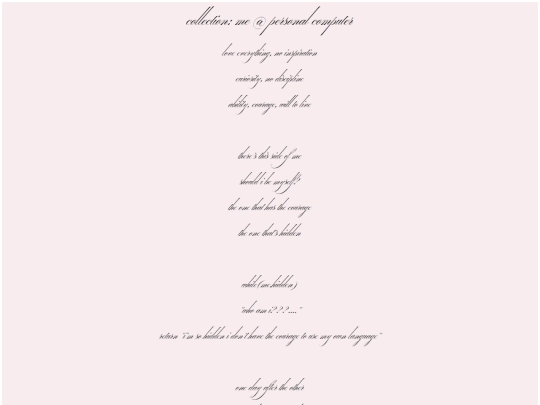 collection: me @ personal computer
love everything, no inspiration
curiosity, no discipline
ability, courage, will to live
there's this side of me
should i be myself?
the one that has the courage
the one that's hidden
while (me.hidden)
"who am i????...."
return "i'm so hidden i don't have the courage to use my own language"
one day after the other